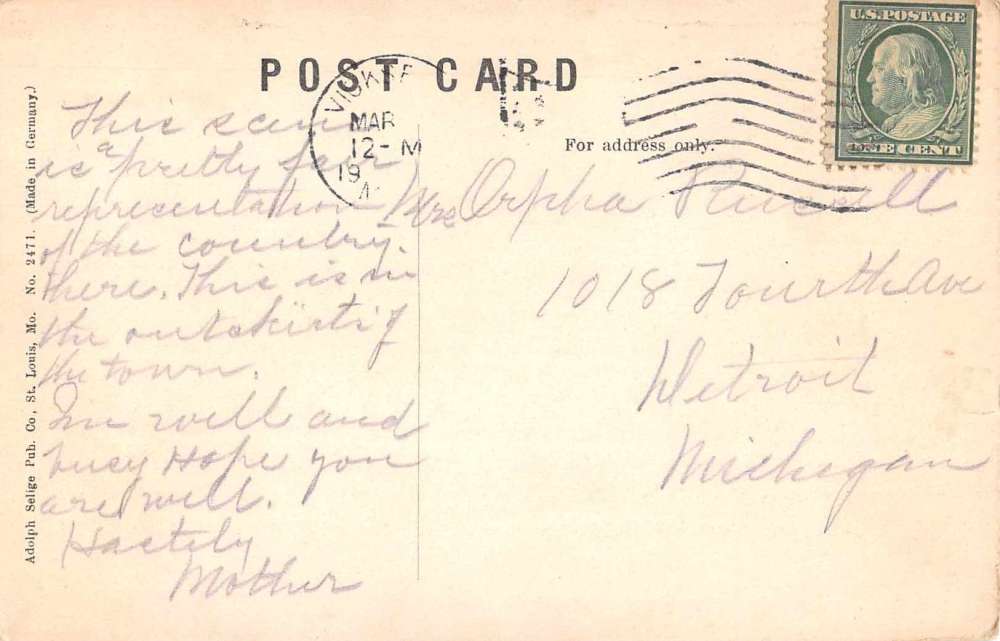 POST CARD
U.S. POSTAGE
ONE CENT
MAR
12-M
19
For address only.
This scene
is a pretty fair
representation
of the country.
there. This is in
the outskirts of
the town.
Im well and
busy Hope you
are well.
Hastily
Mother
Mrs Orpha Russell
1018 Fourth Ave
Detroit
Michigan
Adolph Selige Pub. Co., St. Louis, Mo. No. 2471. (Made in Germany.)